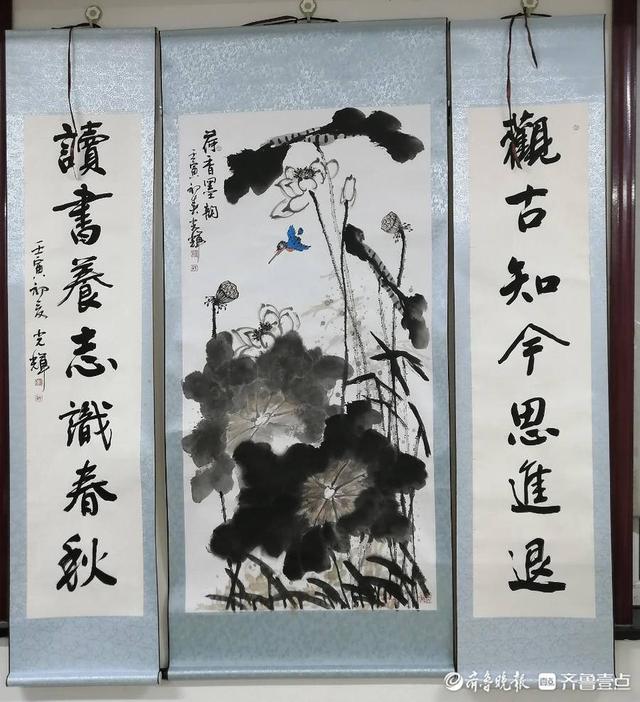 觀古知今思進退
荷香墨韵
壬寅初夏光輝
讀書養志識春秋
壬寅初夏光輝
齐鲁晚报 齐鲁壹点